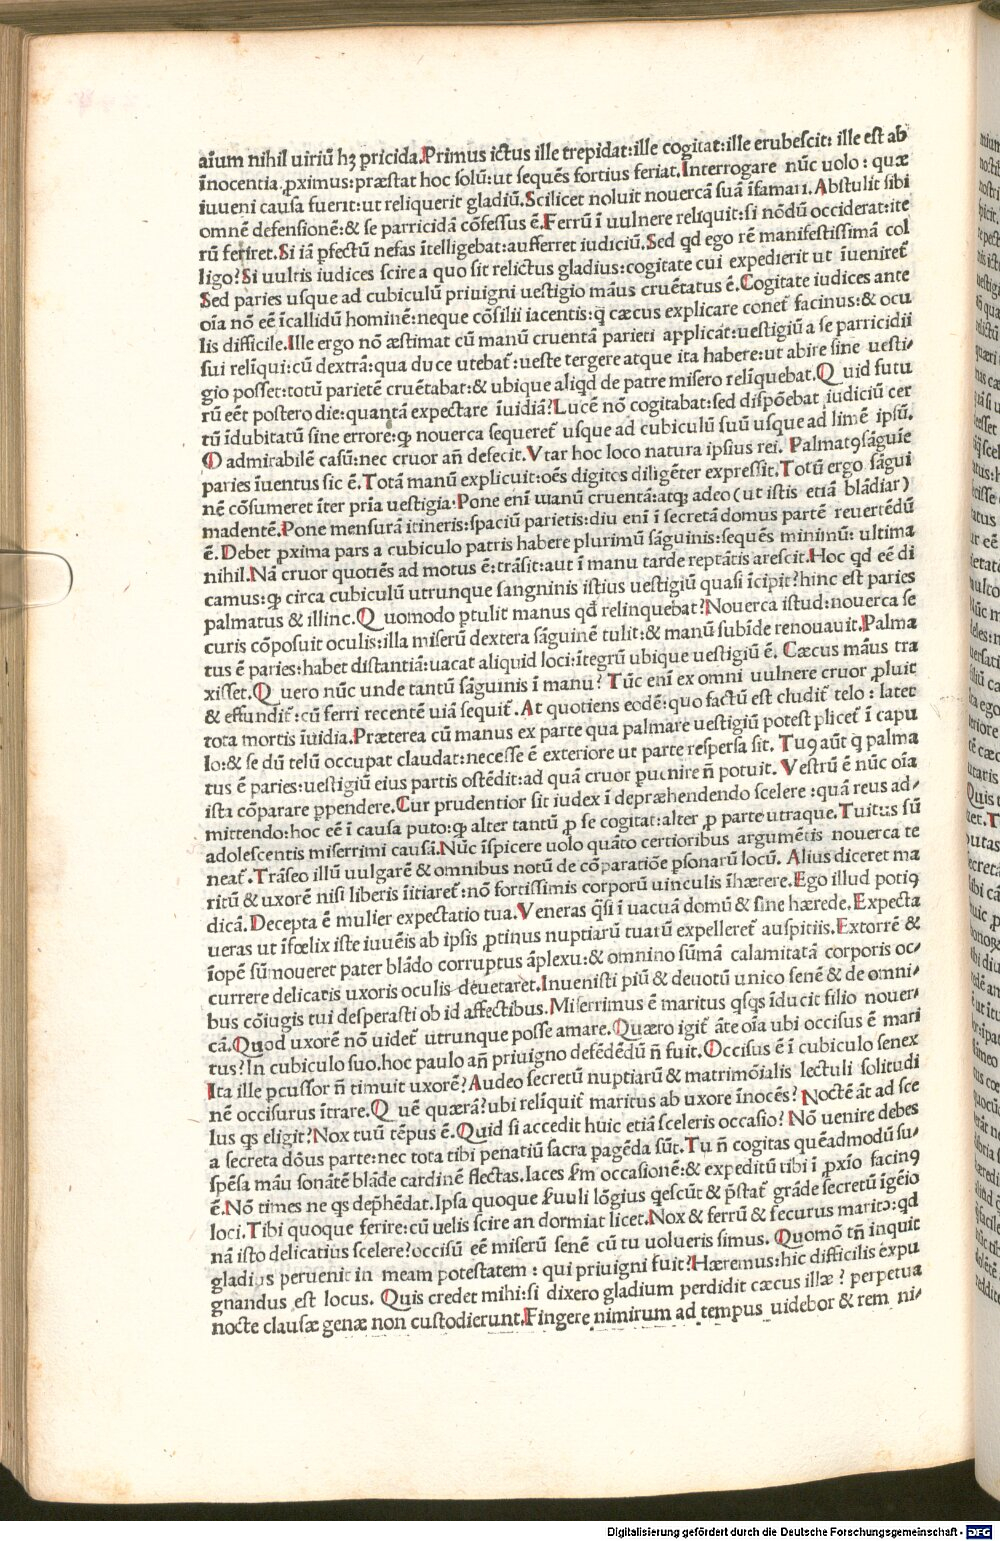 aīum nihil uiriū hꝫ pricida.Primus ictus ille trepidat:ille cogitat:ille erubescit: ille est ab
īnocentia ꝓximus:præstat hoc solū:ut sequēs fortius feriat.Interrogare nūc uolo : quæ
iuueni causa fuerit:ut reliquerit gladiū.Scilicet noluit nouercā suā īfamari.Abstulit sibi
omnē defensionē:& se parricidā cōfessus ē.Ferrū ī uulnere reliquit:si nōdū occiderat:ite
rū feriret.Si iā ꝑfectū nefas ītelligebat:aufferret iudiciū.Sed qd ego rē manifestissimā col
ligo?Si uultis iudices scire a quo sit relictus gladius:cogitate cui expedierit ut īueniret̄
Sed paries usque ad cubiculū priuigni uestigio māus cruētatus ē.Cogitate iudices ante
oīa nō eē īcallidū hominē:neque cōsilii iacentis:q̄ cæcus explicare conet̄ facinus:& ocu
lis difficile.Ille ergo nō æstimat cū manū cruentā parieti applicat:uestigiū a se parricidii
sui relīqui:cū dextrā:qua duce utebat̄:ueste tergere atque ita habere:ut abire sine uesti/
gio posset:totū parietē cruētabat:& ubique aliqd de patre misero relīquebat.Quid futu
rū eēt postero die:quantā expectare īuidiā?Lucē nō cogitabat:sed dispōebat iudiciū cer
tū īdubitatū sine errore:ꝙ nouerca sequeret̄ usque ad cubiculū suū usque ad limē ipsū.
O admirabilē casū:nec cruor an̄ defecit.Vtar hoc loco natura ipsius rei. Palmatꝯ sāguīe
paries īuentus sic ē.Totā manū explicuit:oēs digitos diligēter expressit.Totū ergo sāgui
nē cōsumeret īter pria uestigia.Pone enī manū cruentā:atqꝫ adeo(ut istis etiā blādiar)
madentē.Pone mensurā itineris:spaciū parietis:diu enī ī secretā domus partē reuertēdū
ē.Debet ꝓxima pars a cubiculo patris habere plurimū sāguinis:sequēs minimū: ultima
nihil.Nā cruor quotiēs ad motus ē:trāsit:aut ī manu tarde reptātis arescit.Hoc qd eē di
camus:ꝙ circa cubiculū utrunque sangninis istius uestigiū quasi īcipit?hinc est paries
palmatus & illinc.Quomodo ꝓtulit manus qd relinquebat?Nouerca istud:nouerca se
curis cōposuit oculis:illa miserū dextera sāguinē tulit:& manū subīde renouauit.Palma
tus ē paries:habet distantiā:uacat aliquid loci:ītegrū ubique uestigiū ē. Cæcus māus tra
xisset.Q uero nūc unde tantū sāguinis ī manu? Tūc enī ex omni uulnere cruor ꝓluit
& effundit̄:cū ferri recentē uiā sequit̄.At quotiens eodē:quo factū est cludit̄ telo : latet
tota mortis īuidia.Præterea cū manus ex parte qua palmare uestigiū potest plicet̄ ī capu
lo:& se dū telū occupat claudat:necesse ē exteriore ut parte respersa sit. Tuꝯ aūt q palma
tus ē paries:uestigiū eius partis ostēdit:ad quā cruor puenire n̄ potuit. Vestrū ē nūc oīa
ista cōparare ꝑpendere.Cur prudentior sit iudex ī depræhendendo scelere :quā reus ad/
mittendo:hoc eē ī causa puto:ꝙ alter tantū ꝓ se cogitat:alter ꝓ parte utraque.Tuitus sū
adolescentis miserrimi causā.Nūc īspicere uolo quāto certioribus argumētis nouerca te
neat̄.Trāseo illū uulgarē & omnibus notū de cōparatiōe ꝑsonarū locū. Alius diceret ma
ritū & uxorē nisi liberis īitiaret̄:nō fortissimis corporū uinculis īhærere.Ego illud potiꝯ
dicā.Decepta ē mulier expectatio tua.Veneras q̄si ī uacuā domū & sine hærede.Expecta
ueras ut īfœlix iste iuuēis ab ipsis ꝓtinus nuptiarū tuarū expelleret̄ auspitiis.Extorrē &
īopē sūmoueret pater blādo corruptus āplexu:& omnino sūmā calamitatā corporis oc/
currere delicatis uxoris oculis deuetaret.Inuenisti piū & deuotū unico senē & de omni/
bus cōiugis tui desperasti ob id affectibus.Miserrimus ē maritus qsqs īducit filio nouer/
cā.Quod uxorē nō uidet̄ utrunque posse amare.Quæro igit̄ āte oīa ubi occisus ē mari
tus?In cubiculo suo.hoc paulo an̄ priuigno defēdēdū n̄ fuit.Occisus ē ī cubiculo senex
Ita ille pcussor n̄ timuit uxorē?Audeo secretū nuptiarū & matrimōialis lectuli solitudi
nē occisurus ītrare.Quē quærā?ubi relīquit̄ maritus ab uxore īnocēs?Noctē āt ad sce
lus qs eligit?Nox tuū tēpus ē.Quid si accedit hūic etiā sceleris occasio? Nō uenire debes
a secreta dōus parte:nec tota tibi penatiū sacra pagēda sūt.Tu n̄ cogitas quēadmodū su/
spēsa māu sonātē blāde cardinē flectas.Iaces ẜm occasionē:& expeditū tibi ī ꝓxīo facinꝯ
ē.Nō times ne qs dep̄hēdat.Ipsa quoque ẜuuli lōgius qescūt & p̄stat̄ grāde secretū īgēio
loci.Tibi quoque ferire:cū uelis scire an dormiat licet.Nox & ferrū & securus marito:qd
nā isto delicatius scelere?occisū eē miserū senē cū tu uolueris simus. Quomō tn̄ inquit
gladius peruenit in meam potestatem : qui priuigni fuit?Hæremus:hic difficilis expu
gnandus est locus. Quis credet mihi:si dixero gladium perdidit cæcus illæ ? perpetua
nocte clausæ genæ non custodierunt.Fingere nimirum ad tempus uidebor & rem ni/
Digitalisierung gefördert durch die Deutsche Forschungsgemeinschaft - DFG